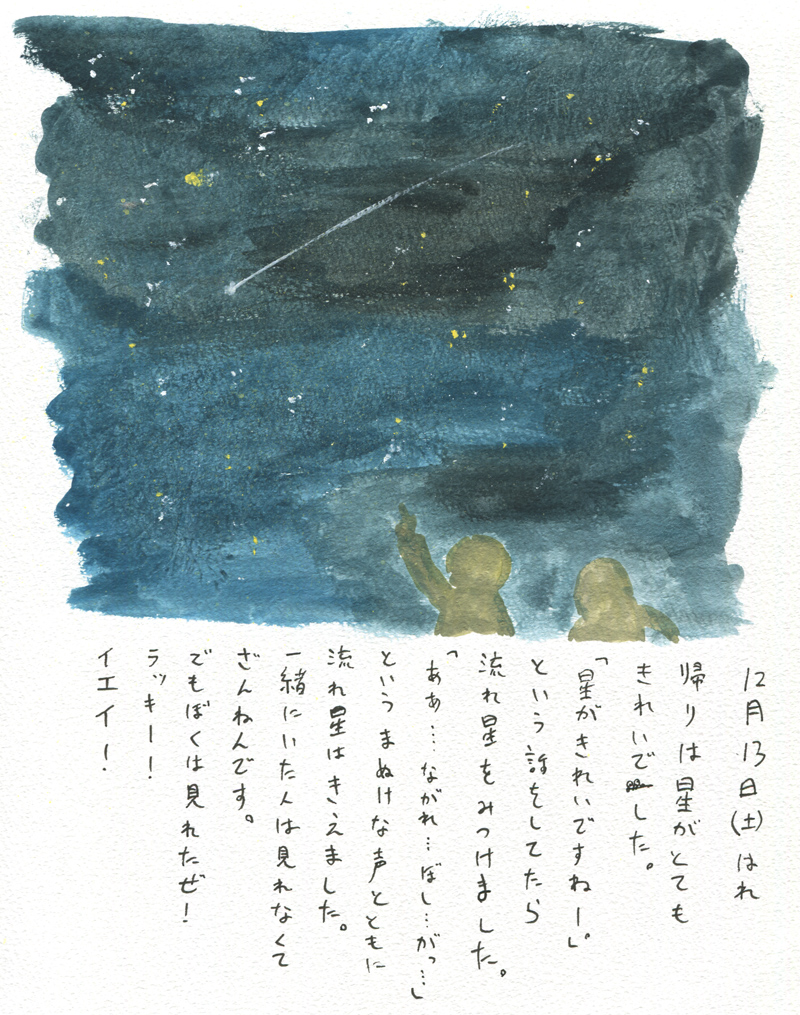 12月13日(土)はれ
帰りは星がとても
きれいでした。
「星がきれいですねー」
という話をしてたら
流れ星をみつけました。
「ああ…ながれ…ぼし…がっ…」
というまぬけな声とともに
流れ星はきえました。
一緒にいた人は見れなくて
ざんねんです。
でもぼくは見れたぜ!
ラッキー!
イエイ!